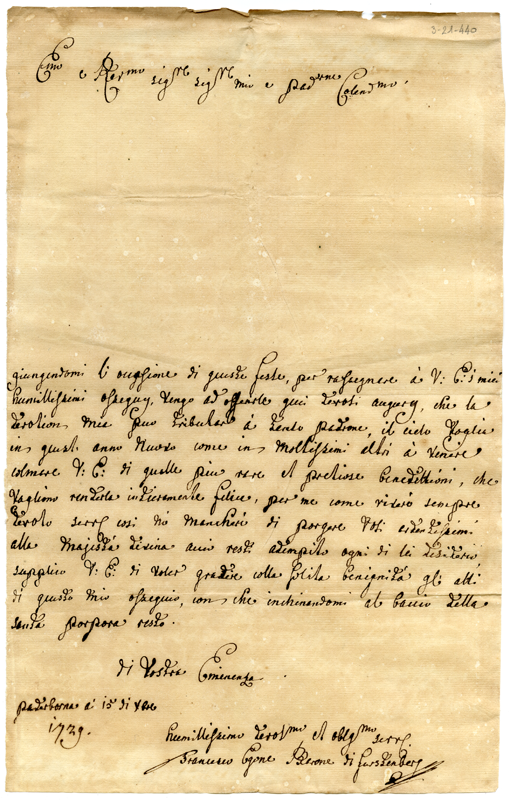 3-21-440
Emo e Revmo sigre sigre mio e padrone Colendmo.
giungendomi l'occasione di queste feste, per rassegnare à V: E: i miei
humillissimi ossequij, vengo ad offerirle quei devoti augurij, che la
devotion mia può tributare à tanto padrone, il cielo voglia
in quest anno Nuovo come in Moltissimi altri à venire
colmare V: E: di quelle più rare et pretiose benedittioni, che
vagliono renderla intieramente felice, per me come viverò sempre
devoto serre cosi nò mancherò di porgere voti ardentissimi
alla Majestà divina acciò resti adempito ogni di lei desiderio
supplico V: E: di voler gradire colla solita benignità gli atti
di questo mio ossequio, con che inchinandomi al baccio della
santa porpora resto.
di Vostra Eminenza
paderborna a' 15 di
1729.
humillissimo devotmo et obligmo serre
Francesco Barone di Furstenberg